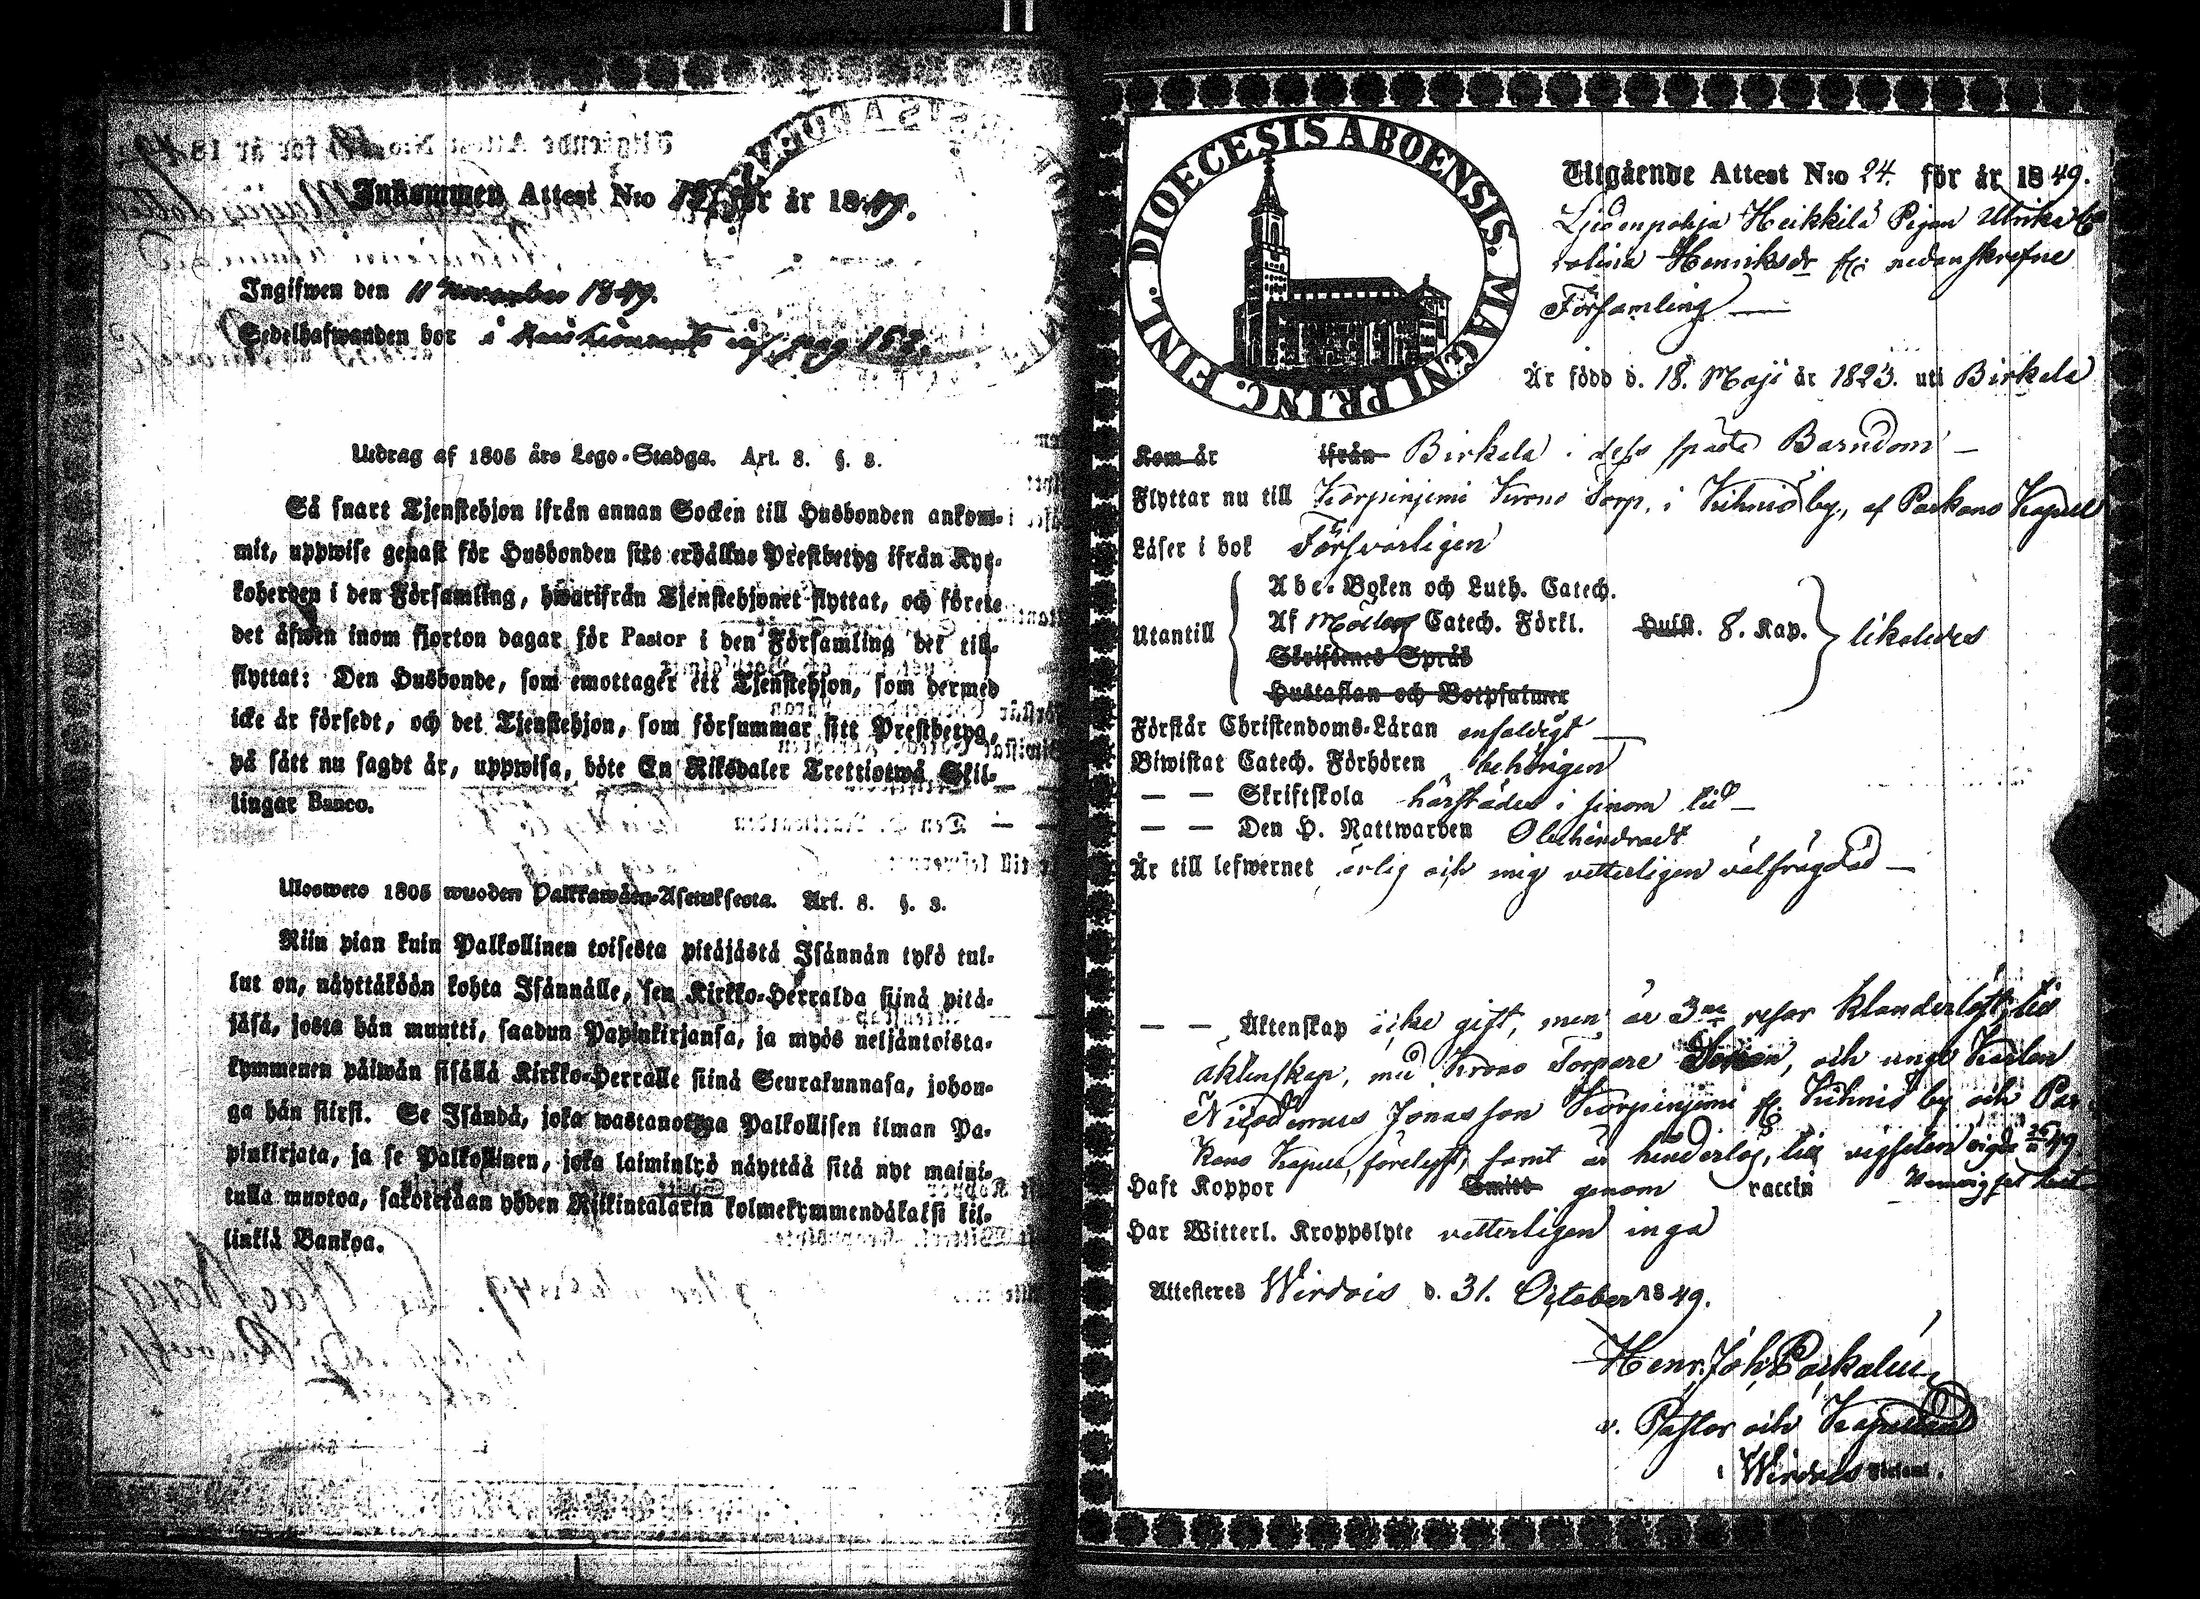 Inkommen Attest N:o för år 1849.
Ingifwen den 11 November 1849.
Sedelhafwanden bor i pag 153.
Utdrag af 1805 års Lego-Stadga. Art. 8. §. 3.
Så snart Tjenstehjon ifrån annan Socken till Husbonden ankom-
mit, uppwise genast för Husbonden sitt erhållne Prestbetyg ifrån Kyr-
koherden i den Församling, hwarifrån Tjenstehjonet flyttat, och förete
det äfwen inom fjorton dagar för Pastor i den Församling det till-
flyttat: Den Husbonde, som emottager ett Tjenstehjon, som dermed
icke är försedt, och det Tjenstehjon, som försummar sitt Prestbetyg,
på sätt nu sagdt är, uppwisa, böte En Riksdaler Trettiotwå Skil-
lingar Banco.
Ulosweto 1805 wuoden Palkkawäen-Asetuksesta. Art. 8. §. 3.
Niin pian kuin Palkollinen toisesta pitäjästä Isännän tykö tul-
lut on, näyttäköön kohta Isännälle, sen Kirkko-Herralda siinä pitä-
jäsä, josta hän muutti, saadun Papinkirjansa, ja myös neljäntoista-
kymmenen päiwän sisällä Kirkko-Herralle siinä Seurakunnasa, johon-
ga hän siirsi. Se Isändä, joka wastanottaa Palkollisen ilman Pa-
pinkirjata, ja se Palkollinen, joka laiminlyö näyttää sitä nyt maini-
tulla muotoa, sakotetaan yhden Riikintalarin kolmekymmendäkaksi kil-
linkiä Bankoa.
DIOECESIS ABOENSIS. MAGNI PRINC. FINL.
Utgående Attest N:o 24. för år 1849.
Ljedenpohja Heikkilä Pigan Ulrika Ca
rolina Henriksdr fr. nedanskrefne
Församling
Är född d. 18. Maji år 1823. uti Birkala
Kom år ifrån Birkala i dess späda Barndom
Flyttar nu till Korpinjemi Krono Torp, i Kihniö by, af Parkano Kapell
Läser i bok Försvarligen
Abc-Boken och Luth. Catech.
Utantill Af Möllers Catech. Förkl. Hust. 8. Kap. likaledes
Skriftenes Språk
Hustaflan och Botpsalmer
Förstår Christendoms-Läran enfaldigt
Biwistat Catech. Förhören behörigen
— — Skriftskola härstädes i sinom tid
— — Den H. Nattwarden Obehindradt
Är till lefwernet ärlig och mig vetterligen välfrägdad
— — Äktenskap icke gift, men är 3ne resor klanderlöst, till
äktenskap, med Krono Torpare Sonen, och unge Karlen
Nicodemus Jonasson Korpinjemi fr. Kihniö by och Par
kano Kapell, förelyst, samt är hinderlös, till vigselen
Haft Koppor Smitt genom vaccin
Har Witterl. Kroppslyte vetterligen inga
Attesteres Wirdois d. 31. October 1849.
Henr. Joh. Parkalin
v. Pastor och Kapellan
i Wirdois